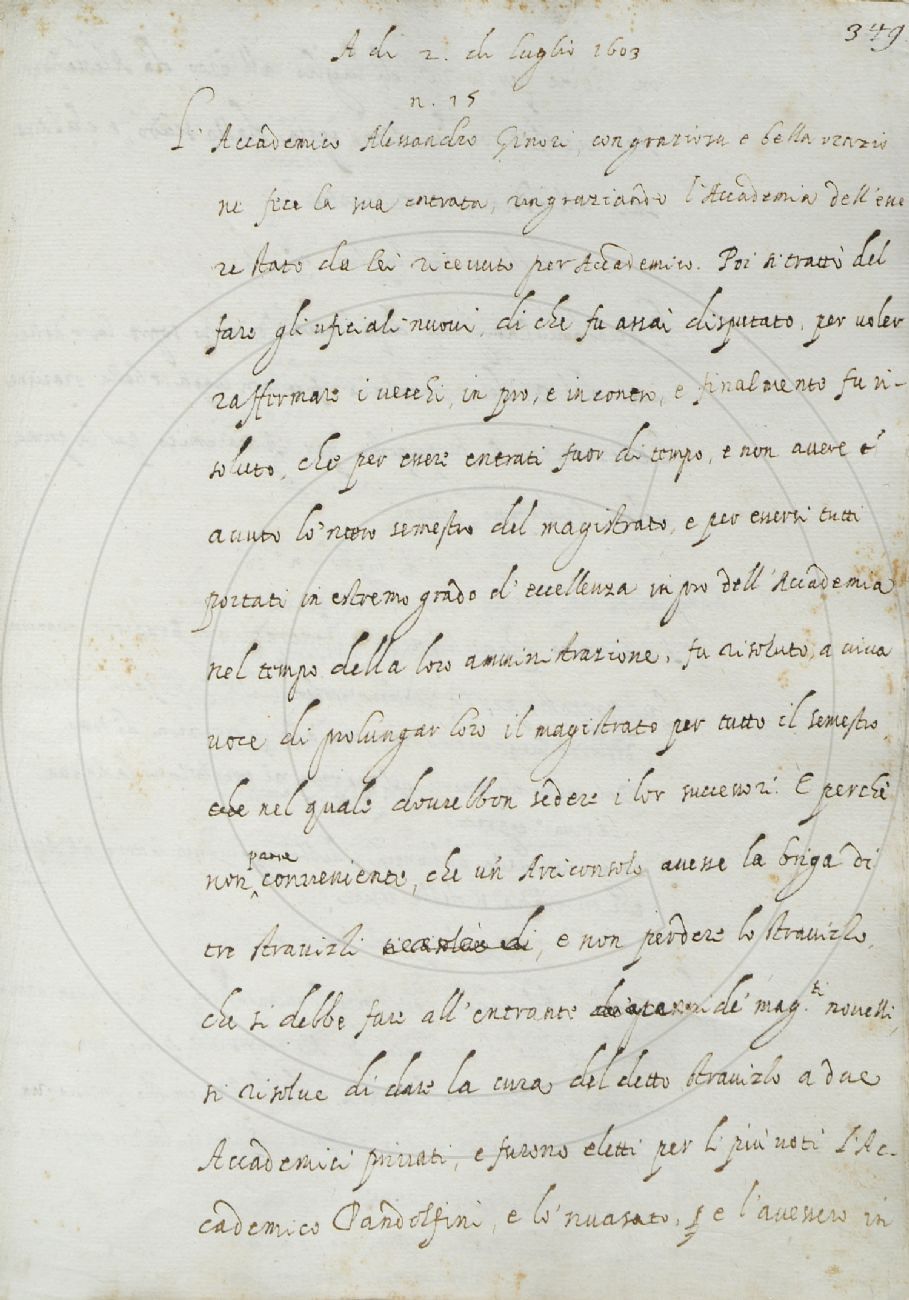 349
A di 2. di luglio 1603
n. 15
L' Accademico Alessandro Ginori, con graziosa e bella orazio
ne fece la sua entrata, ringraziando l'Accademia dell'esse
re stato da lei ricevuto per Accademico. Poi si trattò del
fare gli uficiali nuovi, di che fu assai disputato, per voler
raffermare i vecchi, in pro, e in contro, e finalmente fu ri-
soluto, che per essere entrati fuor di tempo, e non avere
avuto lo 'ntero semestro del magistrato, e per essersi tutti
portati in estremo grado d' eccellenza in pro dell'Accademia
nel tempo della loro amministrazione, fu risoluto, a viva
voce di prolungar loro il magistrato per tutto il semestro
nel quale dovrebbon sedere i lor successori. E perchè
non parve conveniente, che un Arciconsolo avesse la briga di
tre stravizzi, e non perdere lo stravizzo,
che si debbe fare all'entrante de' mag.ti novelli,
si risolve di dare la cura del detto stravizzo a due
Accademici privati, e furono eletti per li più voti l'Ac-
cademico Pandolfini, e lo 'nvasato, e l'avessero in